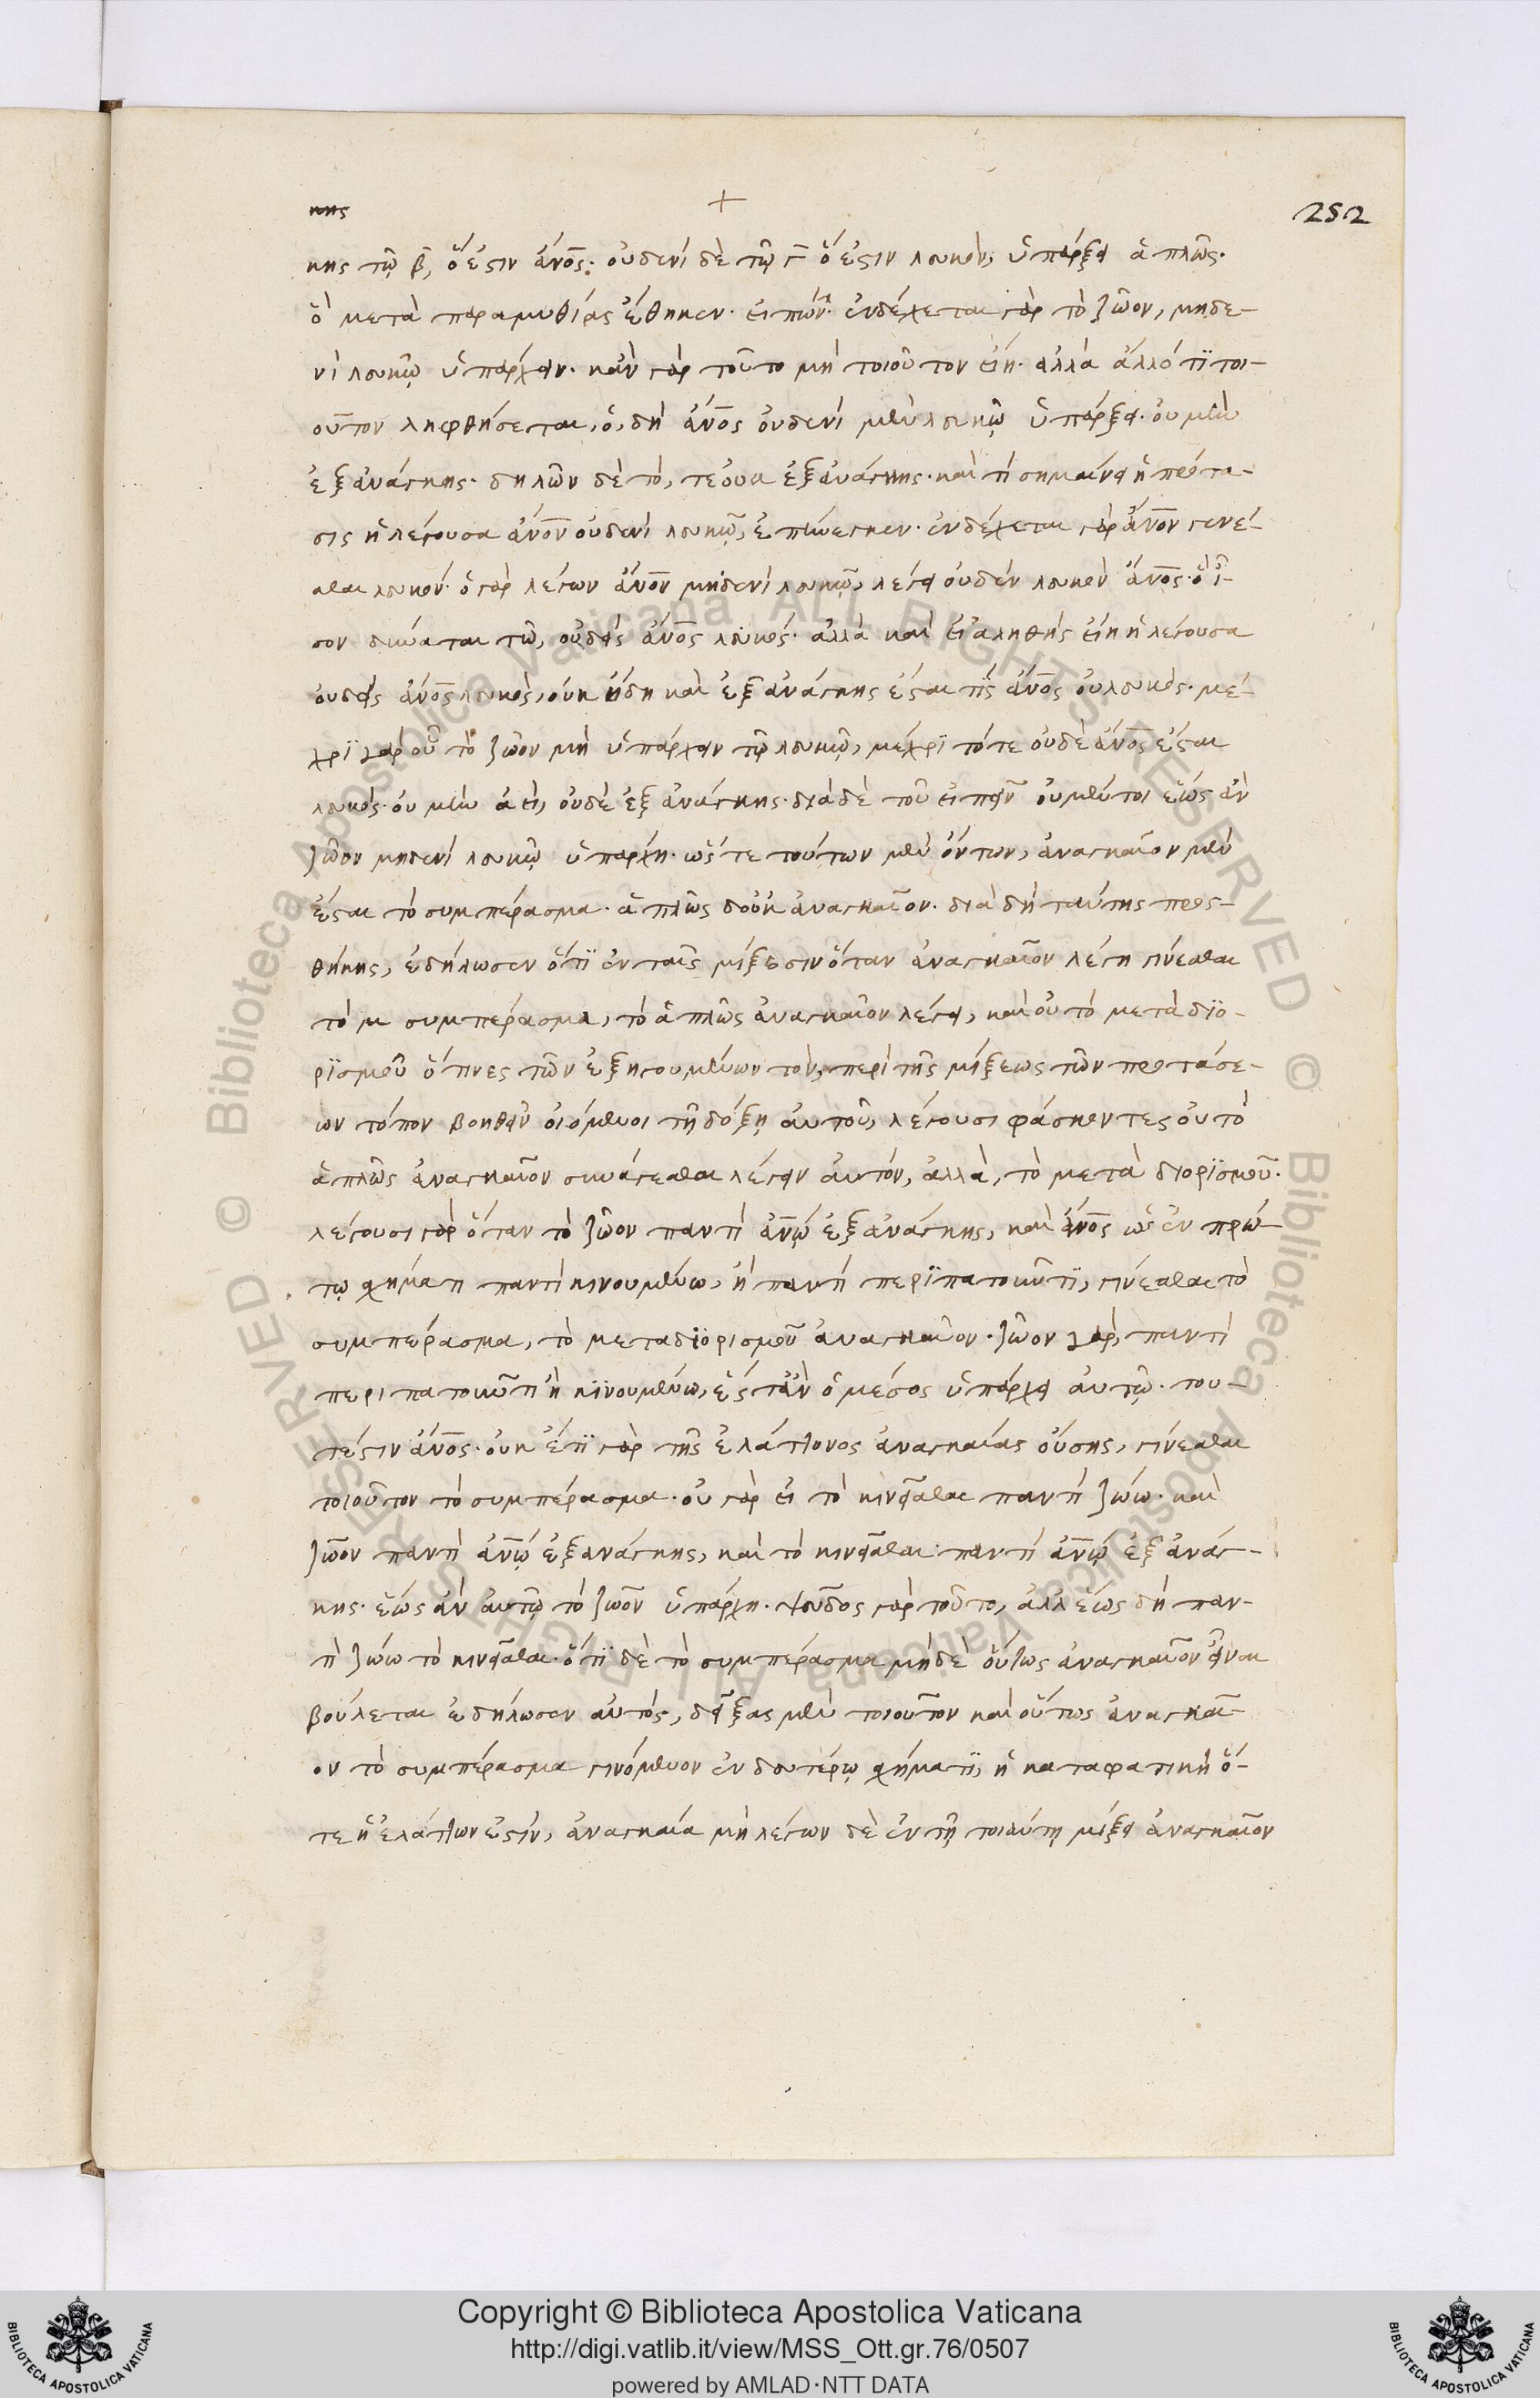 252
κης τῷ β, ὅ ἐστιν ἄνος· οὐδενὶ δὲ τῷ γ ὅ ἐστιν λευκὸν, ὑπάρξει ἁπλῶς·
ὃ μετὰ παραμυθίας ἔθηκεν· εἰπών· ἐνδέχεται γὰρ τὸ ζῶον, μηδε-
νὶ λευκῷ ὑπάρχειν· κἂν γὰρ τοῦτο μὴ τοιοῦτον εἴη· ἀλλὰ ἄλλό τϊ τοι-
οῦτον ληφθήσεται, ὁ, δὴ ἄνος οὐδενὶ μὲν λευκῷ ὑπάρξει· οὐ μὴν
ἐξ ἀνάγκης· δηλῶν δὲ τὸ, τε οὐκ ἐξ ἀνάγκης· καὶ τί σημαίνει ἡ πρότα-
σις ἡ λέγουσα ἄνον οὐδενὶ λευκῷ, ἐπήνεγκεν· ἐνδέχεται γὰρ ἄνον γενέ-
σθαι λευκόν· ὁ γὰρ λέγων ἄνον μηδενὶ λευκῷ, λέγει οὐδὲν λευκὸν ἄνος· ὃ ἴ-
σον δύναται τῷ, οὐδεὶς ἄνος λευκός· ἀλλὰ καὶ εἰ ἀληθὴς εἴη ἡ λέγουσα
οὐδεὶς ἄνος λευκὸς, οὐκ ἤδη καὶ ἐξ ἀνάγκης ἔσται τὶς ἄνος οὐ λευκὸς· μέ-
χρϊ γὰρ οὗ τὸ ζῶον μὴ ὑπάρχειν τῷ λευκῷ, μέχρϊ τότε οὐδὲ ἄνος ἔσται
λευκός· οὐ μὴν ἀεὶ, οὐδὲ ἐξ ἀνάγκης· διὰ δὲ τοῦ εἰπεῖν οὐ μέντοι ἕως ἂν
ζῶον μηδενὶ λευκῷ ὑπάρχῃ· ὥστε τούτων μὲν ὄντων, ἀναγκαῖον μὲν
ἔσται τὸ συμπέρασμα· ἁπλῶς δ οὐκ ἀναγκαῖον· διὰ δὴ ταύτης προσ-
θήκης, ἐδήλωσεν ὅτϊ ἐν ταῖς μίξεσιν ὅταν ἀναγκαῖον λέγῃ γίνεσθαι
τὸ μ συμπέρασμα, τὸ ἁπλῶς ἀναγκαῖον λέγει, καὶ οὐ τὸ μετὰ διο-
ρϊσμοῦ ὅ τινες τῶν ἐξηγουμένων τὸν, περὶ τῆς μίξεως τῶν προτάσε-
ων τόπον βοηθεῖν οἰόμενοι τῇ δόξῃ αὐτοῦ, λέγουσι φάσκοντες οὐ τὸ
ἁπλῶς ἀναγκαῖον συνάγεσθαι λέγειν αὐτόν, ἀλλὰ, τὸ μετὰ διορϊσμοῦ·
λέγουσι γὰρ ὅταν τὸ ζῶον παντὶ ἀνῷ ἐξ ἀνάγκης, καὶ ἄνος ὡς ἐν πρώ-
τῳ σχήματι παντὶ κινουμένω, ἢ παντὶ περϊπατοῦντϊ, γίνεσθαι τὸ
συμπέρασμα, τὸ μεταδϊορισμοῦ ἀναγκαῖον· ζῶον γὰρ, παντὶ
περιπατοῦντι ἢ κϊνουμένω, ἔστ' ἂν ὁ μέσος ὑπάρχει αὐτῷ· του-
τέστιν ἄνος· οὐκ ἔτϊ γὰρ τῆς ἐλάττονος ἀναγκαίας οὔσης, γίνεσθαι
τοιοῦτον τὸ συμπέρασμα· οὐ γὰρ εἰ τὸ κινεῖσθαι παντὶ ζώω· καὶ
ζῶον παντὶ ἀνῷ ἐξ ἀνάγκης, καὶ τὸ κινεῖσθαι παντὶ ἀνῷ ἐξ ἀνάγ-
κης· ἕως ἂν αὐτῷ τὸ ζῶον ὑπάρχῃ· ψεῦδος γὰρ τοῦτο, ἀλλ ἕως δὴ παν-
τὶ ζώω τὸ κινεῖσθαι· ὅτϊ δὲ τὸ συμπέρασμα μὴ δὲ οὕτως ἀναγκαῖον εἶναι
βούλεται ἐδήλωσεν αὐτός, δείξας μὲν τοιοῦτον καὶ οὕτως ἀναγκαῖ-
ον τὸ συμπέρασμα γινόμενον ἐν δευτέρῳ σχήματϊ, ἡ καταφατικὴ ὅ-
τε ἡ ἐλάττων ἐστὶν, ἀναγκαία μὴ λέγων δὲ ἐν τῇ τοιαύτῃ μίξει ἀναγκαῖον
© Biblioteca Apostolica Vaticana ALL RIGHTS RESERVED © Biblioteca Apostolica Vaticana ALL RIGHTS RESERVED
Copyright © Biblioteca Apostolica Vaticana
http://digi.vatlib.it/view/MSS_Ott.gr.76/0507
powered by AMLAD·NTT DATA
BIBLIOTECA APOSTOLICA VATICANA
BIBLIOTECA APOSTOLICA VATICANA